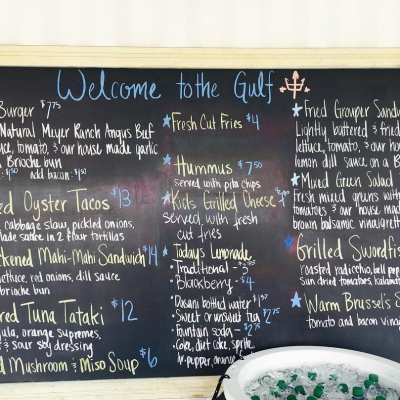 Welcome to the Gulf
Burger $7.75
Natural Meyer Ranch Angus Beef
tomato, & our house made garlic
Brioche bun
add bacon: $1.50
Oyster Tacos $13
cabbage slaw, pickled onions,
made sauce in 2 flour tortillas
Mahi-Mahi Sandwich $14
lettuce, red onions, dill sauce
brioche bun
Tuna Tataki $12
orange supremes,
& sour soy dressing
Mushroom & Miso Soup $6
Fresh Cut Fries $4
Hummus $7.50
served with pita chips
Kids Grilled Cheese
served with fresh
cut fries
Today's Lemonade
Traditional -
Blackberry - $4
Dasani bottled water
Sweet or unsweet tea
Fountain soda -
Coke, diet coke, sprite,
Dr. pepper, orange
Fried Grouper
Lightly battered & fried
lettuce, tomato, & our
lemon dill sauce, on a
Mixed Green Salad
Fresh mixed greens
tomatoes, & our house
brown balsamic
Grilled
roasted radicchio, bell
sun dried tomatoes,
Warm Brussel's
tomato and bacon